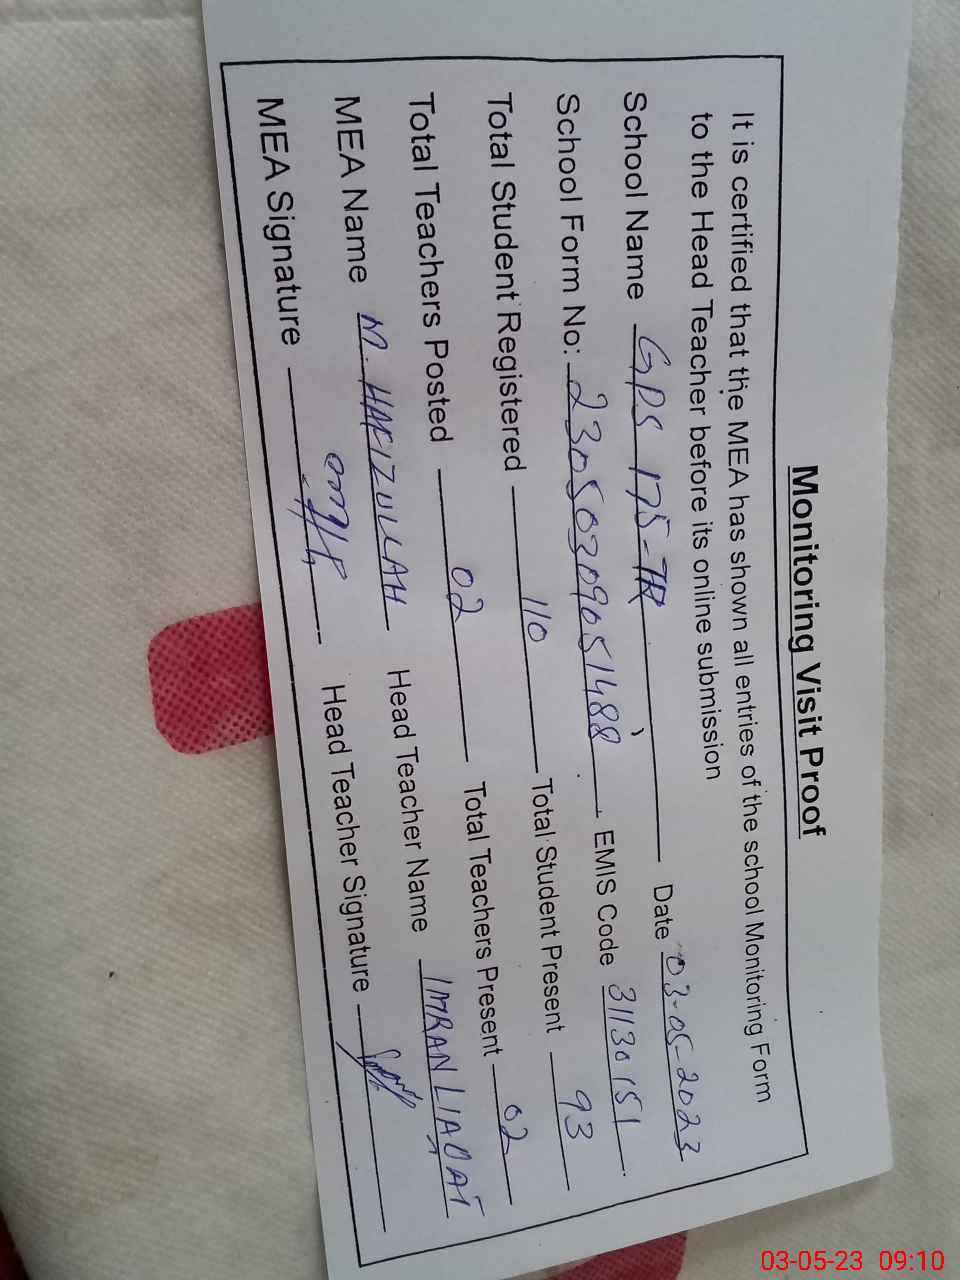 Monitoring Visit Proof
It is certified that the MEA has shown all entries of the school Monitoring Form
to the Head Teacher before its online submission
School Name GPS 175-7R Date 03-05-2023
School Form No: 23050309051488 EMIS Code 31130151
Total Student Registered 110 Total Student Present 93
Total Teachers Posted 02 Total Teachers Present 02
MEA Name M. HAFIZULLAH Head Teacher Name IMRAN LIAQAT
MEA Signature Head Teacher Signature
03-05-23 09:10